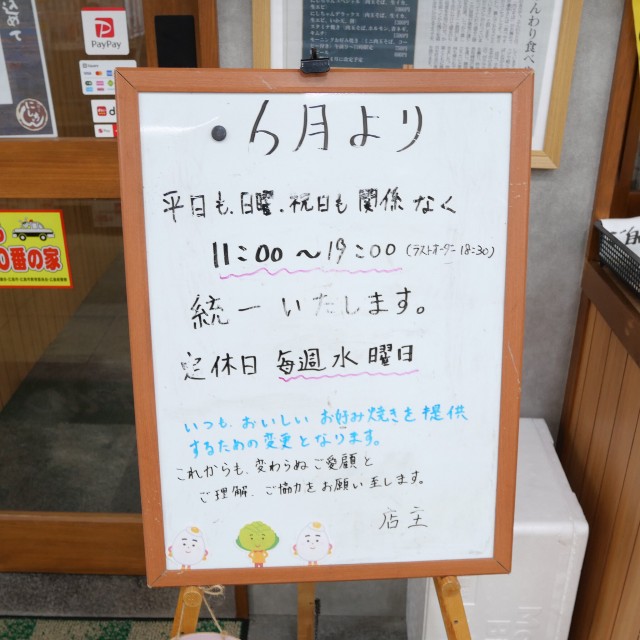 PayPay
6月より
平日も、日曜、祝日も関係なく
11:00〜19:00 (ラストオーダー18:30)
統一いたします。
定休日 毎週水曜日
いつも、おいしい お好み焼きを提供
するための変更となります。
これからも、変わらぬご愛顧と
ご理解、ご協力をお願い至します。
店主
番の家